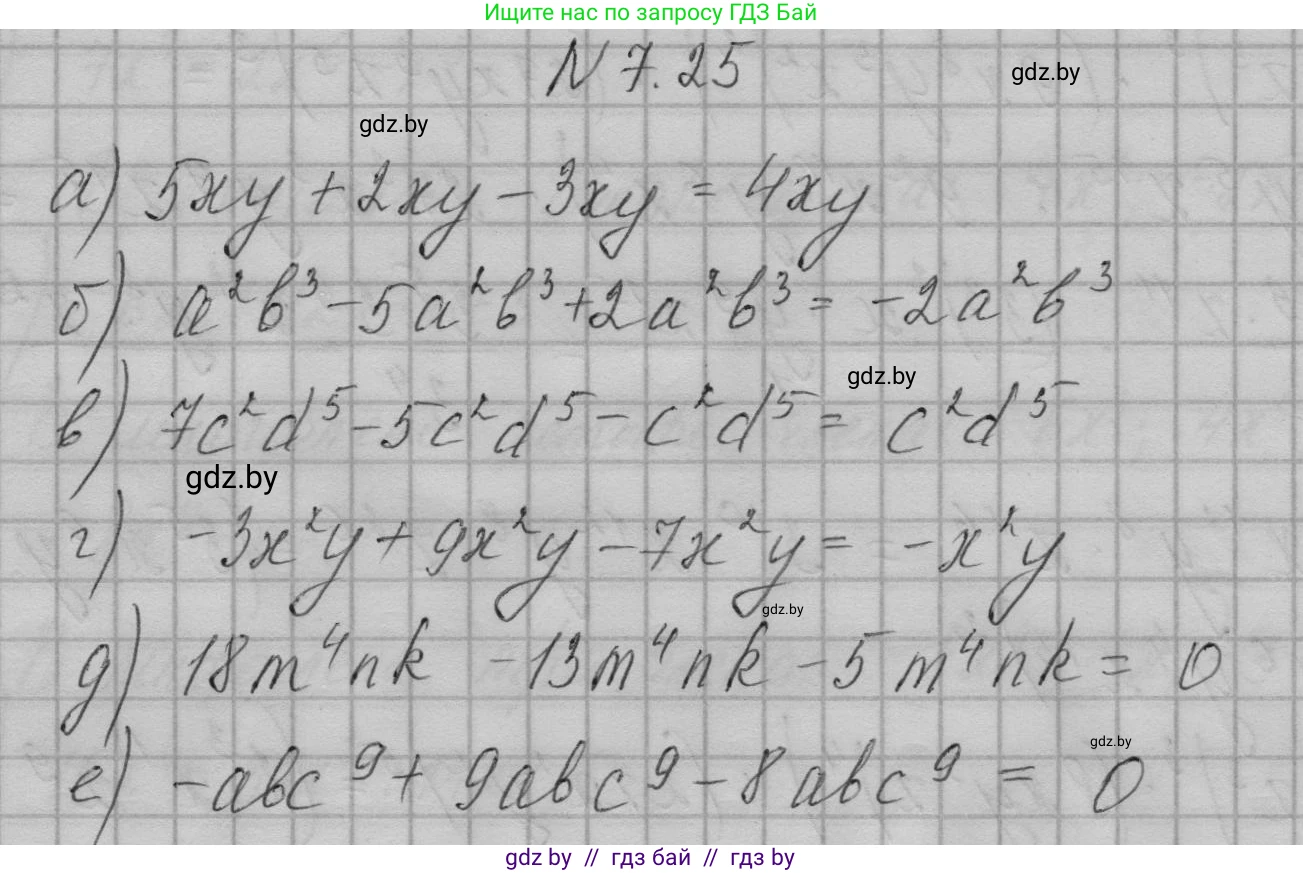 Ищите нас по запросу ГДЗ Бай
N 7.25
gdz.by
gdz.by
а) 5xy + 2xy - 3xy = 4xy
б) a²b³ - 5a²b³ + 2a²b³ = -2a²b³
gdz.by
в) 7c²d⁵ - 5c²d⁵ - c²d⁵ = c²d⁵
gdz.by
г) -3x²y + 9x²y - 7x²y = -x²y
gdz.by
д) 18m⁴nk - 13m⁴nk - 5m⁴nk = 0
gdz.by
е) -abc⁹ + 9abc⁹ - 8abc⁹ = 0
gdz by // гдз бай // гдз by